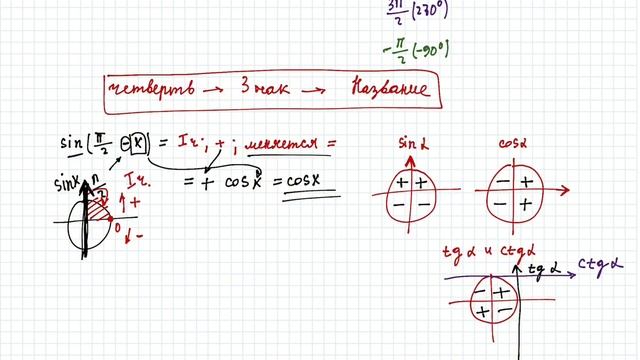 3π/2 (270°)
-π/2 (-90°)
четверть → Знак → Название
sin(π/2 - x) = Iч; +; меняется =
= + cos x = cos x
sin x π/2 Iч.
↑ +
0
↓ -
sin α
+ +
- -
cos α
- +
- +
tg α и ctg α
tg α ctg α
- +
+ -